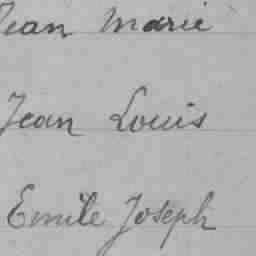 Jean Marie
Jean Louis
Emile Joseph